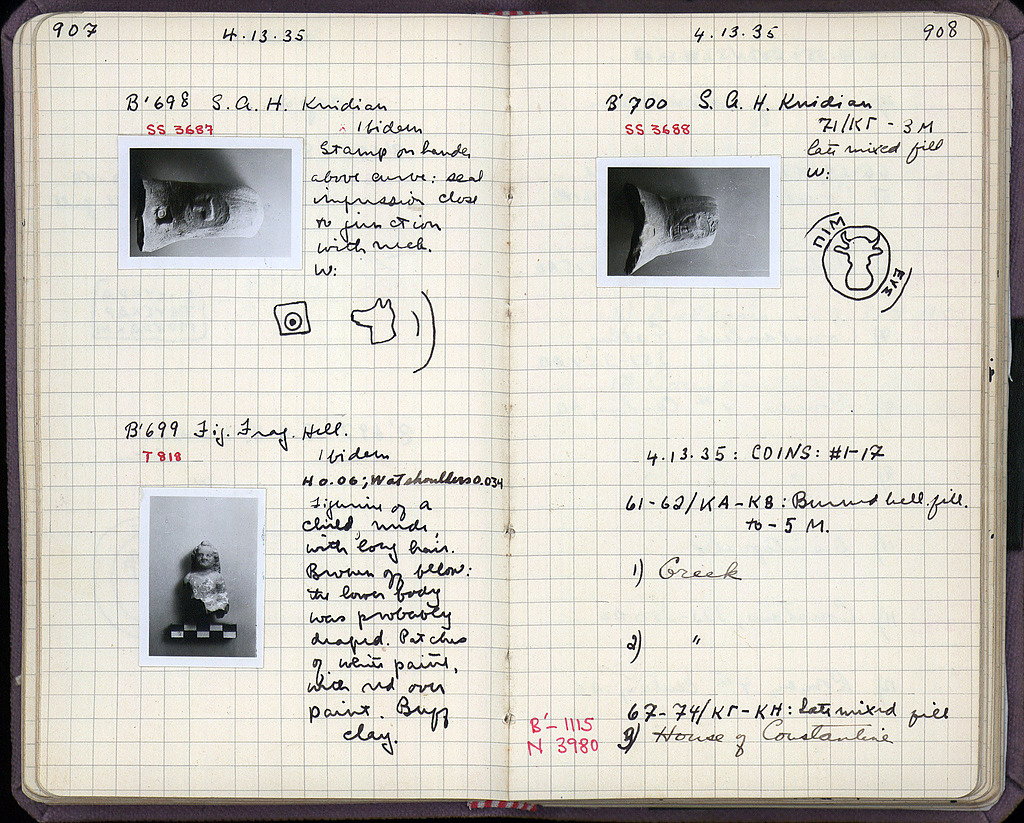 907
4.13.35
B'698 S.A.H. Knidian
SS 3687
^ Ibidem
Stamp on handle
above curve: seal
impression close
to junction
with neck.
W:
B'699 Fig. Frag. Hell.
T 818
Ibidem
H 0.06; W at shoulders 0.034
Figurine of a
child, nude,
with long hair.
Broken off below:
the lower body
was probably
draped. Patches
of white paint,
with red over
paint. Buff
clay.
4.13.35
908
B'700 S.A.H. Knidian
SS 3688
71/ΚΓ - 3 M
late mixed fill
W:
ΠΙΜ
ΕΥΣ
4.13.35: COINS: #1-17
61-62/ΚΑ-ΚΒ: Burned hell. fill.
to -5 M.
1) Greek
2) "
67-74/ΚΓ-ΚΗ: Late mixed fill
B'-1115
N 3980
3) House of Constantine